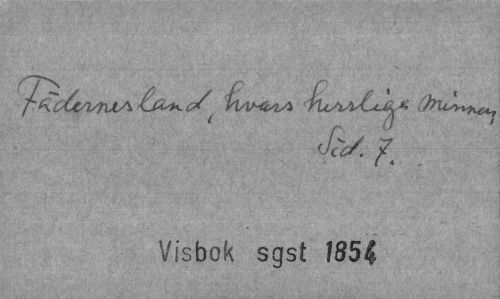 Fädernesland, hvars herrliga minnen,
Sid. 7.
Visbok sgst 1854